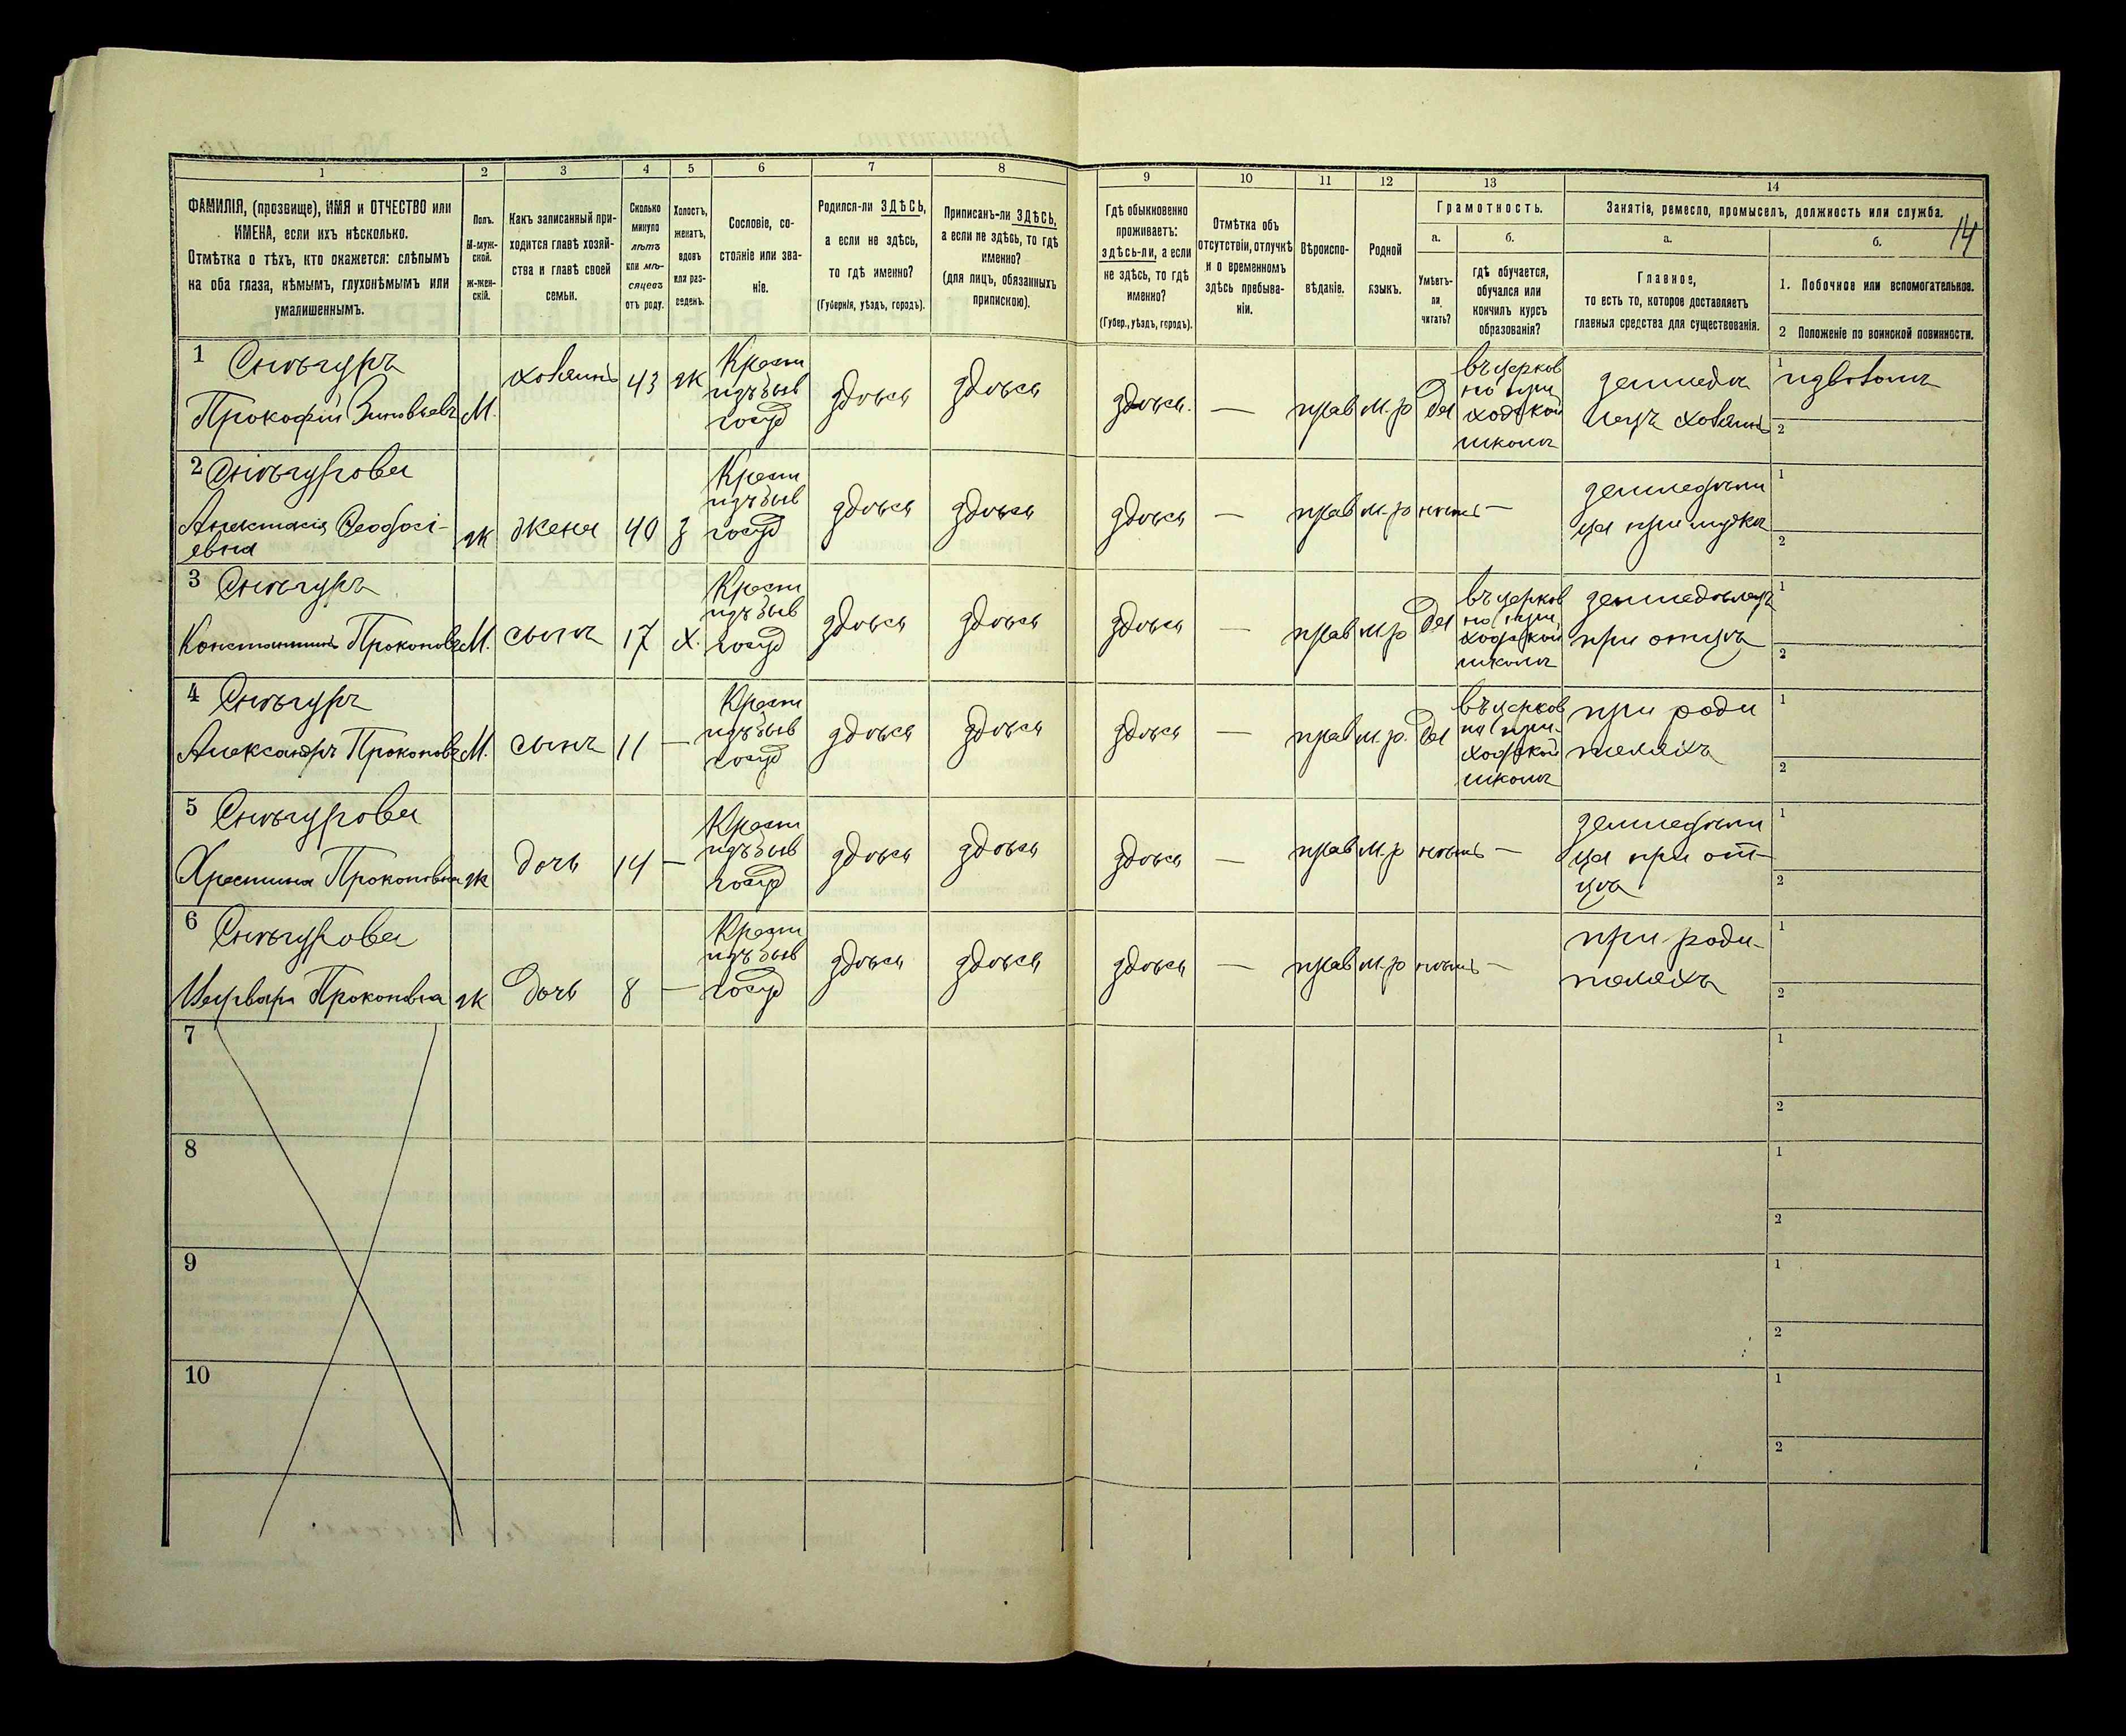 14
1 2 3 4 5 6 7 8 9 10 11 12 13 14
ФАМИЛІЯ, (прозвище), ИМЯ и ОТЧЕСТВО или
ИМЕНА, если ихъ нѣсколько.
Отмѣтка о тѣхъ, кто окажется: слѣпымъ
на оба глаза, нѣмымъ, глухонѣмымъ или
умалишеннымъ.
Полъ.
М-муж-
ской.
Ж-жен-
скій.
Какъ записанный при-
ходится главѣ хозяй-
ства и главѣ своей
семьи.
Сколько
минуло
лѣтъ
или мѣ-
сяцевъ
отъ роду.
Холостъ,
женатъ,
вдовъ
или раз-
веденъ.
Сословіе, со-
стояніе или зва-
ніе.
Родился-ли ЗДѢСЬ,
а если не здѣсь,
то гдѣ именно?
(Губернія, уѣздъ, городъ).
Приписанъ-ли ЗДѢСЬ,
а если не здѣсь, то гдѣ
именно?
(для лицъ, обязанныхъ
припискою).
Гдѣ обыкновенно
проживаетъ:
здѣсь-ли, а если
не здѣсь, то гдѣ
именно?
(Губер., уѣздъ, городъ).
Отмѣтка объ
отсутствіи, отлучкѣ
и о временномъ
здѣсь пребыва-
ніи.
Вѣроиспо-
вѣданіе.
Родной
языкъ.
Грамотность.
а.
Умѣетъ-
ли
читать?
б.
гдѣ обучается,
обучался или
кончилъ курсъ
образованія?
Занятіе, ремесло, промыселъ, должность или служба.
а.
Главное,
то есть то, которое доставляетъ
главныя средства для существованія.
б.
1. Побочное или вспомогательное.
2 Положеніе по воинской повинности.
1 Снѣгуръ
Прокофій Зиновьевъ
М.
хозяинъ
43
ж
Крест
изъ быв
госуд
здѣсь
здѣсь
здѣсь.
—
прав
м.р
Да
въ церков
но при
ходской
школѣ
земледѣ
лецъ хозяинъ
1 извозомъ
2
2 Снѣгурова
Анастасія Ѳеодосі-
евна
ж
жена
40
з
Крест
изъ быв
госуд
здѣсь
здѣсь
здѣсь
—
прав
м.р
нѣтъ
—
земледѣли
ца при мужѣ
1
2
3 Снѣгуръ
Константинъ Прокоповъ
М.
сынъ
17
х.
Крест
изъ быв
госуд
здѣсь
здѣсь
здѣсь
—
прав
м.р
Да
въ церков
но при
ходской
школѣ
земледѣлецъ
при отцѣ
1
2
4 Снѣгуръ
Александръ Прокоповъ
М.
сынъ
11
—
Крест
изъ быв
госуд
здѣсь
здѣсь
здѣсь
—
прав
м.р.
Да
въ церков
но при-
ходской
школѣ
при роди
теляхъ
1
2
5 Снѣгурова
Христина Прокоповна
ж
дочь
14
—
Крест
изъ быв
госуд
здѣсь
здѣсь
здѣсь
—
прав
м.р
нѣтъ
—
земледѣли
ца при от-
цѣ
1
2
6 Снѣгурова
Варвара Прокоповна
ж
дочь
8
—
Крест
изъ быв
госуд
здѣсь
здѣсь
здѣсь
—
прав
м.р
нѣтъ
—
при роди-
теляхъ
1
2
7
1
2
8
1
2
9
1
2
10
1
2